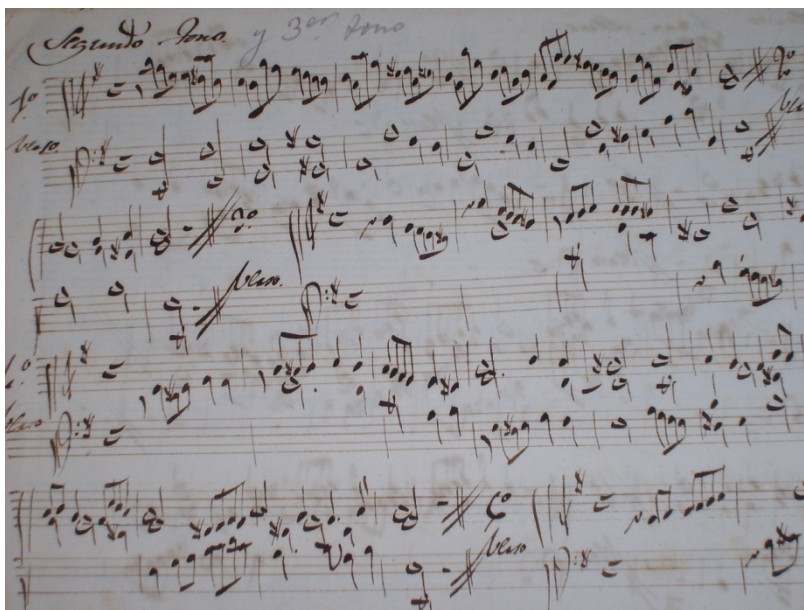 Segundo Tono. y 3er tono
1.º 2.º
Verso.
3.º
Verso.
Verso